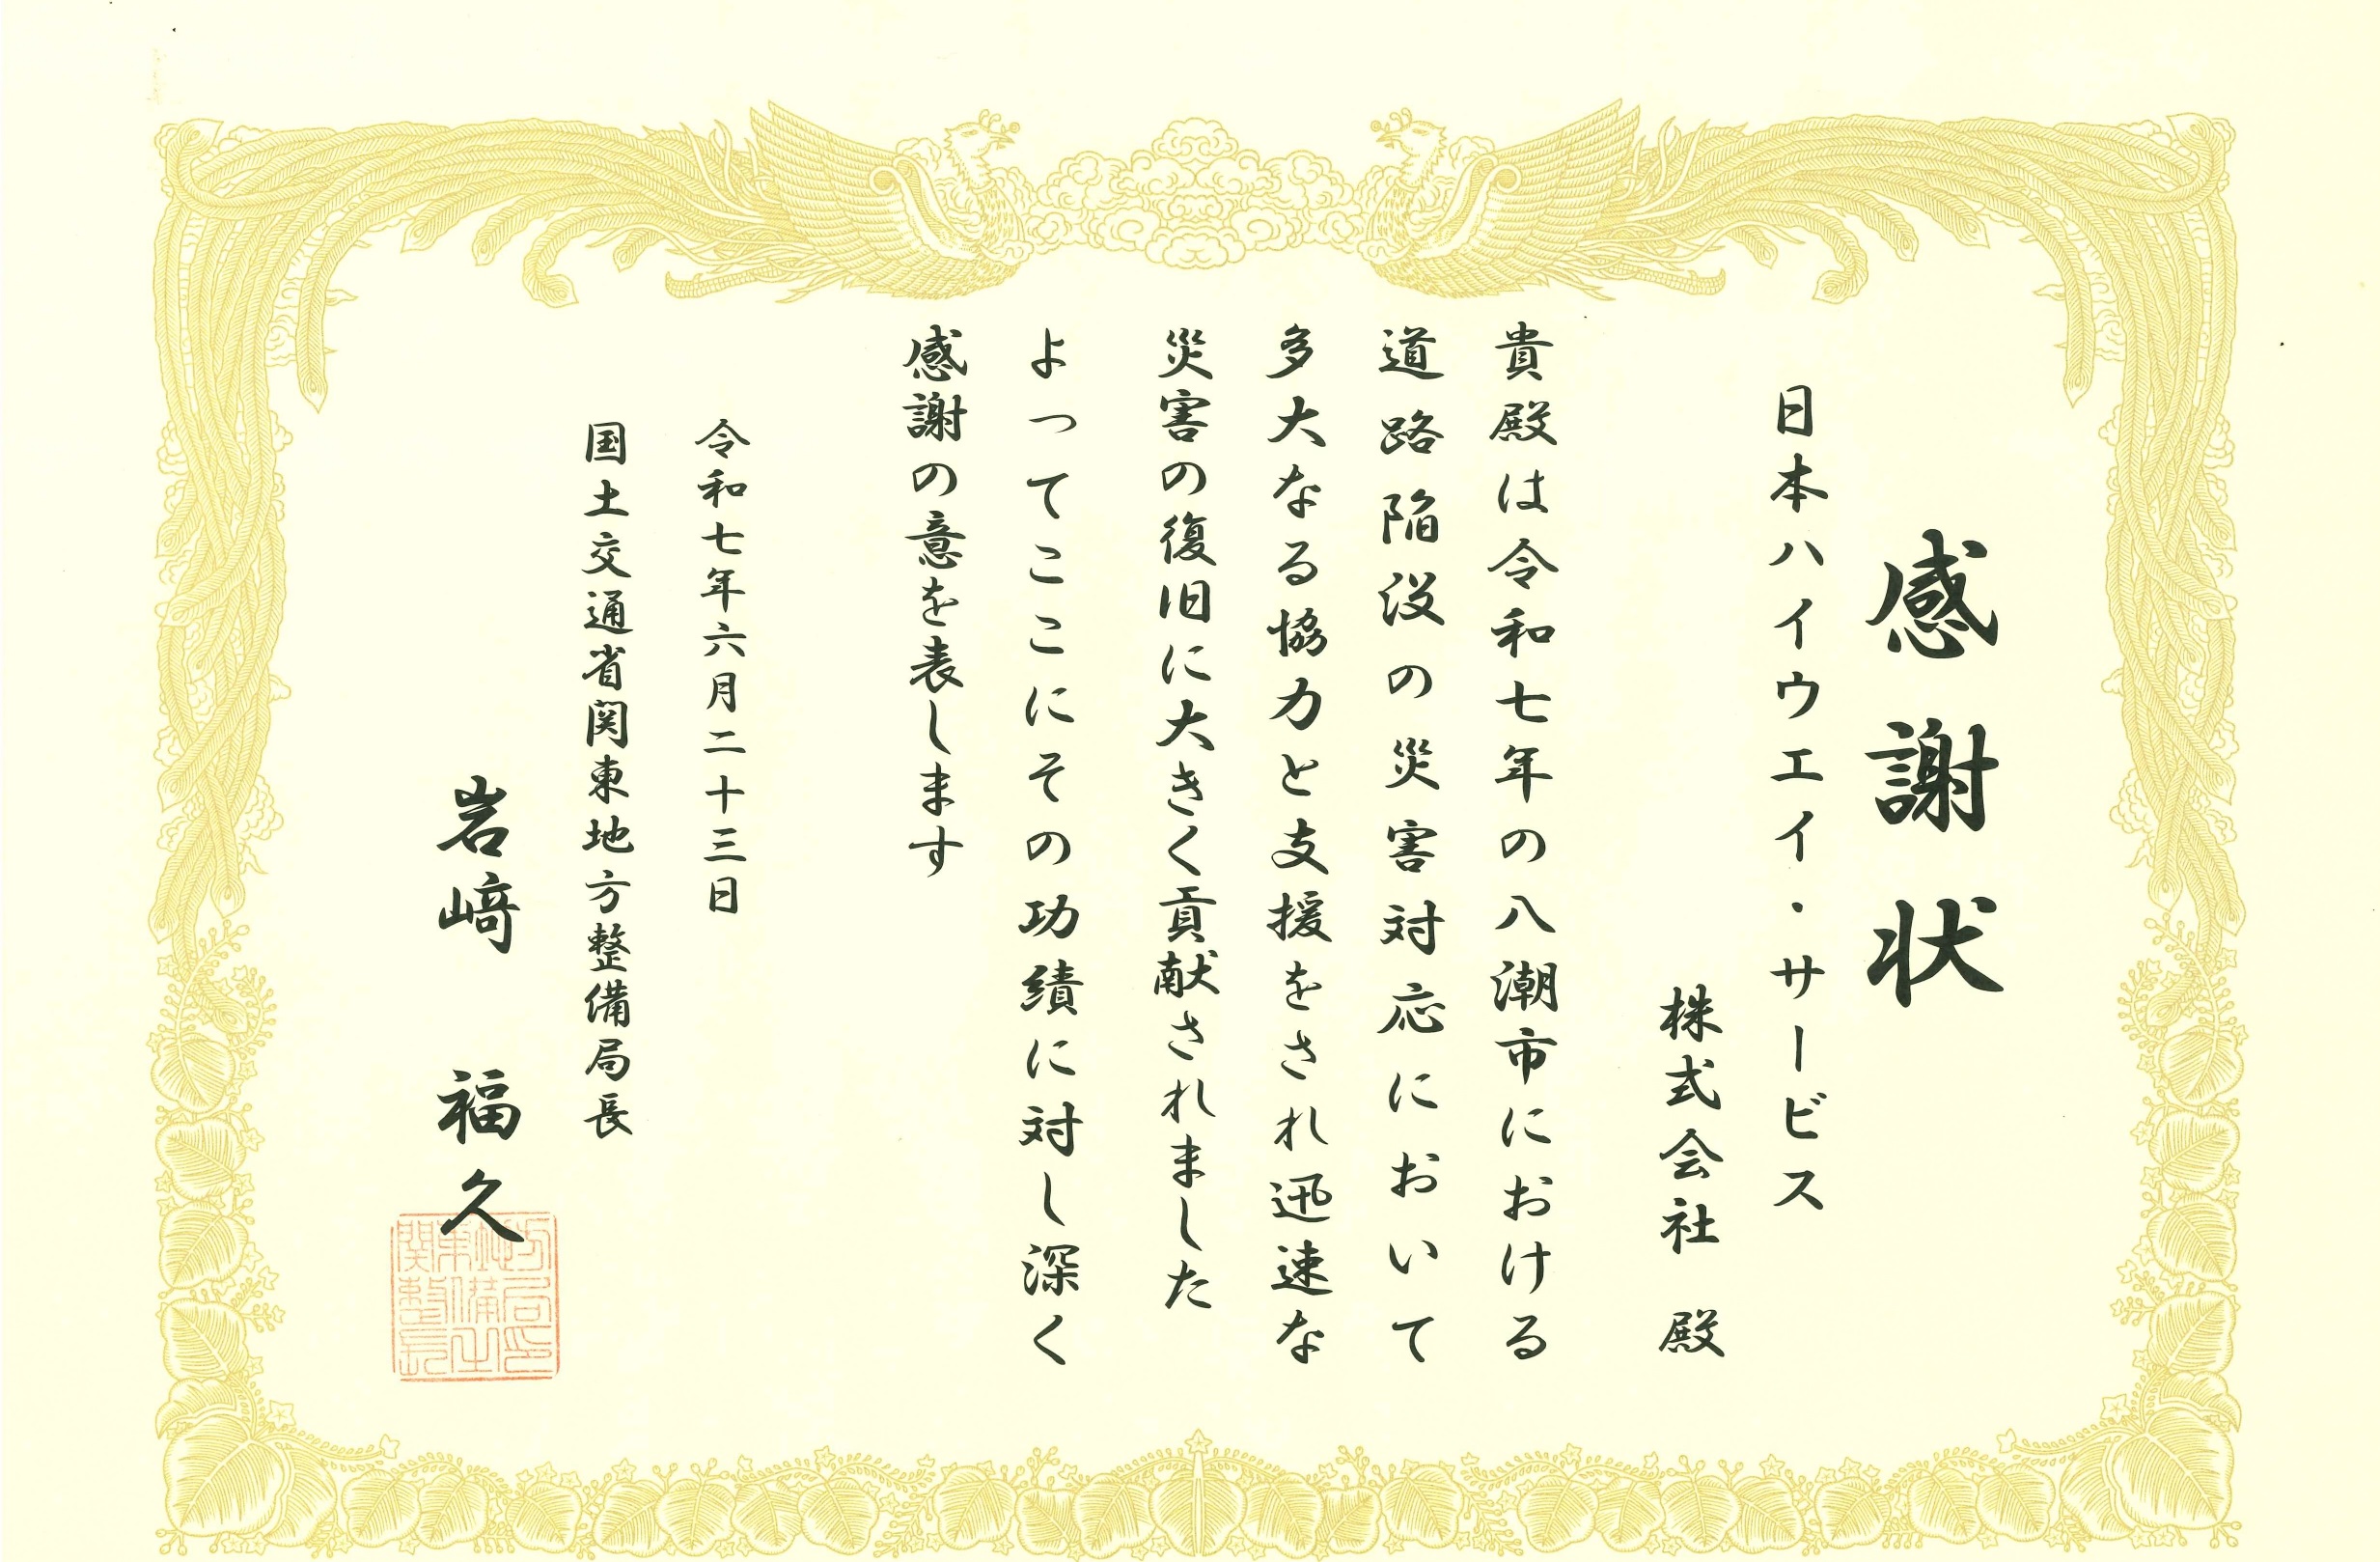 感謝状
日本ハイウエイ・サービス
株式会社 殿
貴殿は令和七年の八潮市における
道路陥没の災害対応において
多大なる協力と支援をされ迅速な
災害の復旧に大きく貢献されました
よってここにその功績に対し深く
感謝の意を表します
令和七年六月二十三日
国土交通省関東地方整備局長
岩﨑 福久